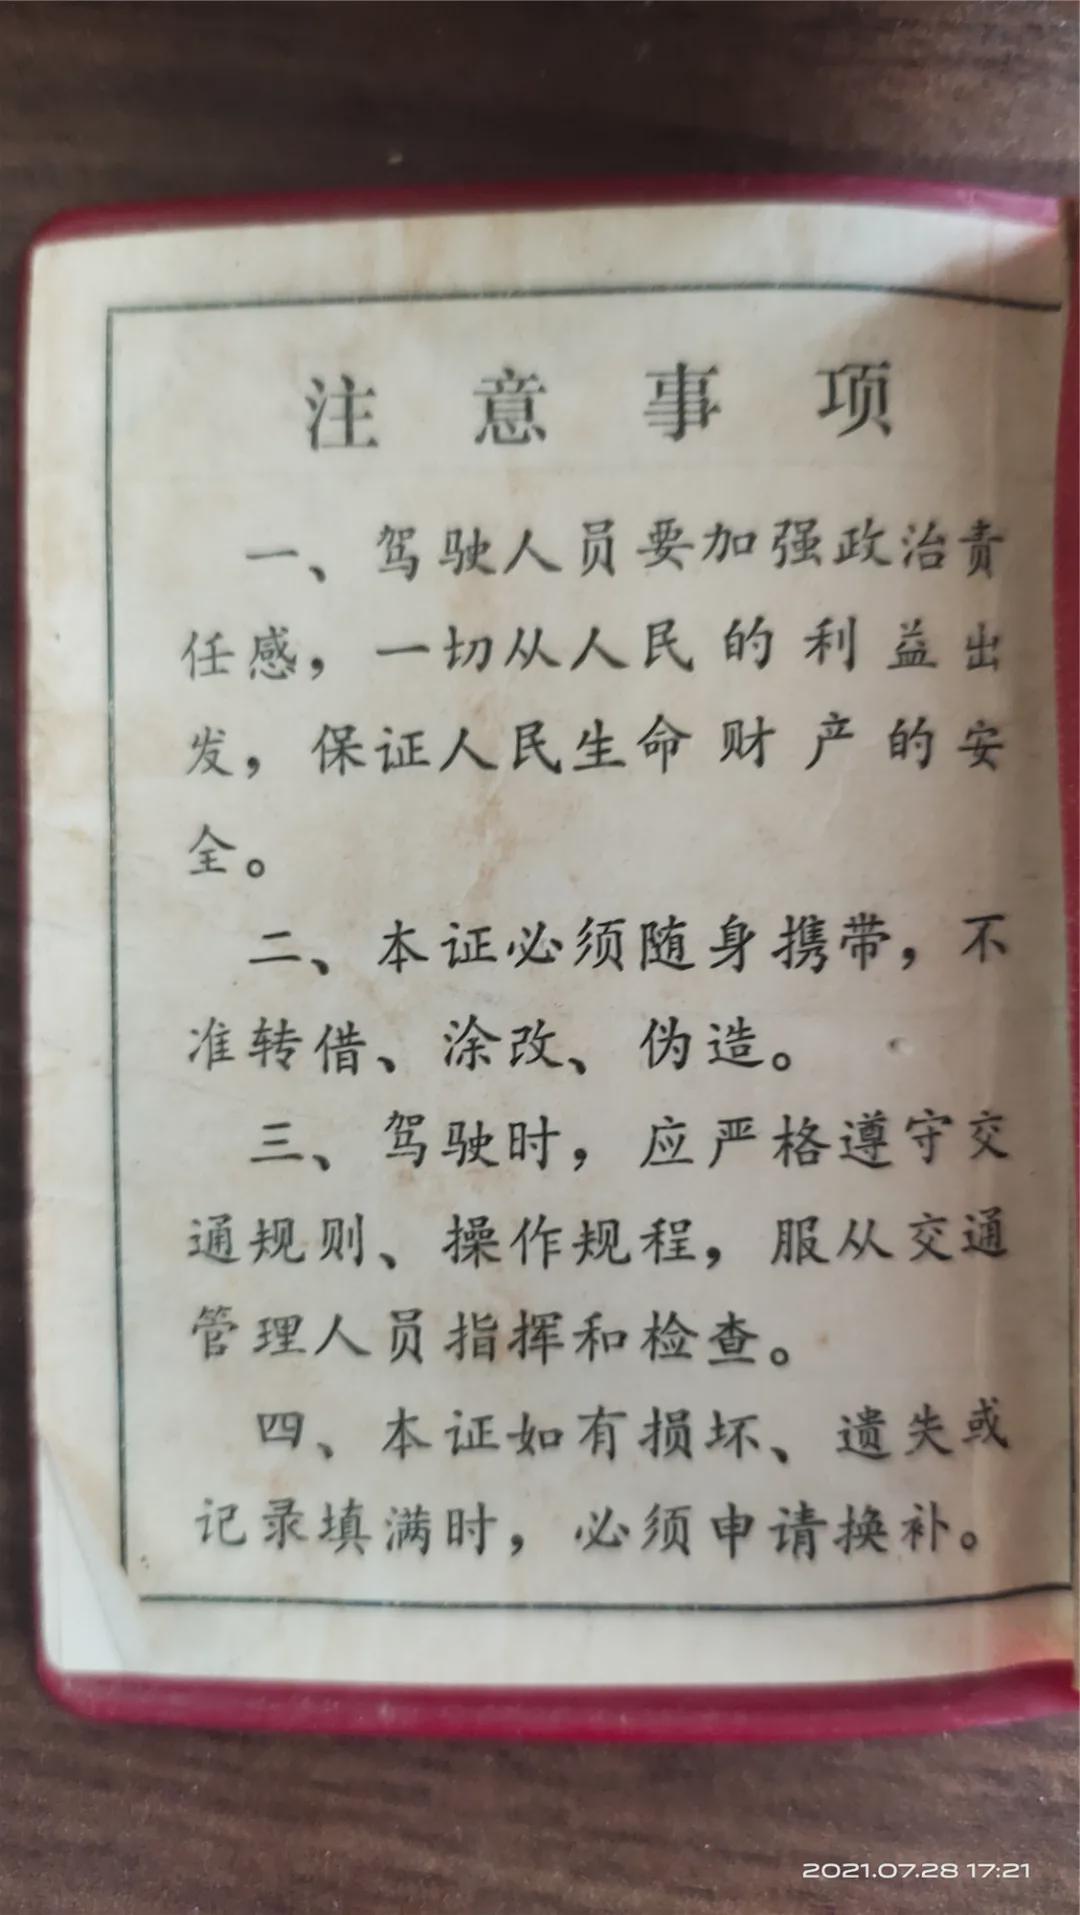 注意事项
一、驾驶人员要加强政治责
任感，一切从人民的利益出
发，保证人民生命财产的安
全。
二、本证必须随身携带，不
准转借、涂改、伪造。
三、驾驶时，应严格遵守交
通规则、操作规程，服从交通
管理人员指挥和检查。
四、本证如有损坏、遗失或
记录填满时，必须申请换补。
2021.07.28 17:21